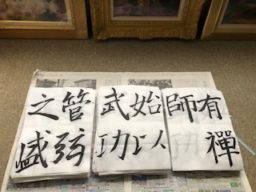 有禪
師
始以
武功
管弦
之盛